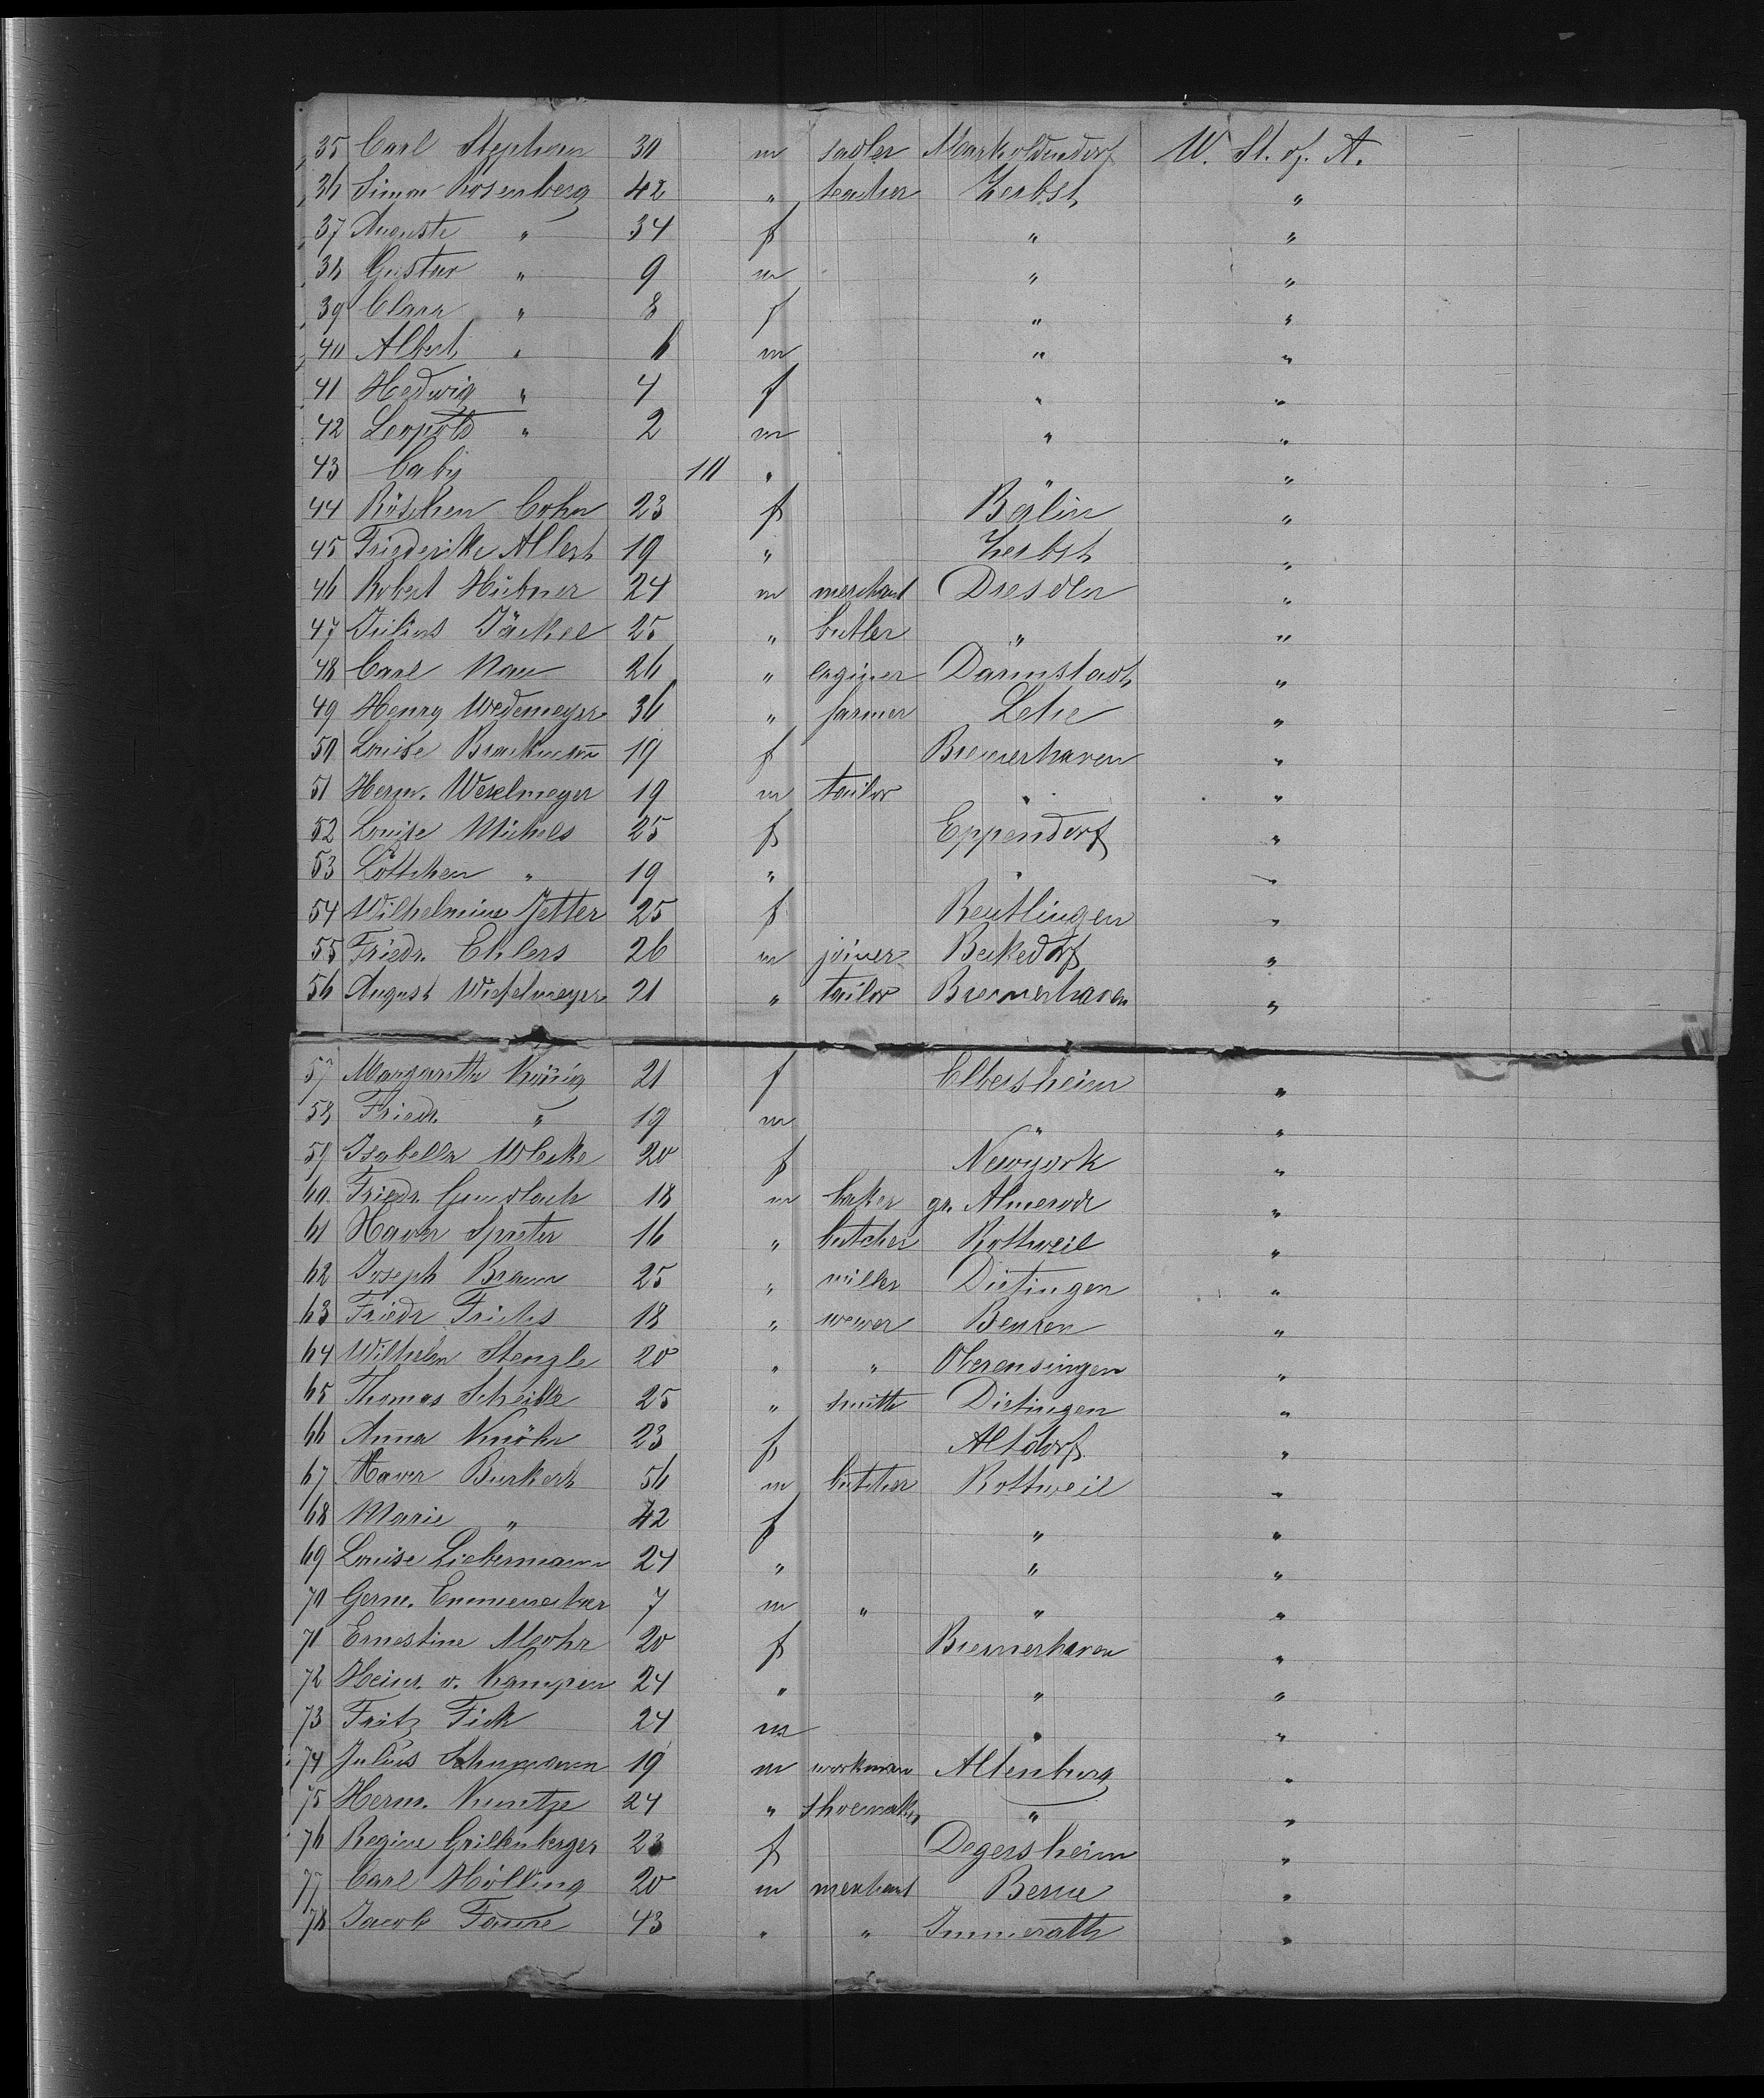 35 Carl Stephan 30 m sadler Markoldendorf W. St. of. A.
36 Simon Rosenberg 42 " teacher Zerbst "
37 Auguste " 34 f " "
38 Gustav " 9 m " "
39 Clara " 8 f " "
40 Albert " 6 m " "
41 Hedwig " 4 f " "
42 Leopold " 2 m " "
43 Baby 10 " " "
44 Röschen Cohn 23 f "
45 Friederike Albert 19 " Zerbst "
46 Robert Hübner 24 m merchant Dresden "
47 Julius Jäckel 25 " butler " "
48 Carl Nau 26 " enginer Darmstadt "
49 Henry Wedemeyer 36 " farmer Lehe "
50 Louise Brackmann 19 f Bremerhaven "
51 Herm. Weselmeyer 19 m tailor " "
52 Louise Michels 25 f Eppendorf "
53 Löttchen " 19 " " "
54 Wilhelmine Jetter 25 f Reutlingen "
55 Friedr. Ehlers 26 m joiner Beckedorf "
56 August Wieselmeyer 21 " tailor Bremerhaven "
57 Margarethe König 21 f Elbersheim "
58 Friedr. " 19 m " "
59 Isabella 20 f Newyork "
60 Friedr. Gundlach 18 m baker gr. Almerode "
61 Xaver Spreter 16 " butcher Rottweil "
62 Joseph Braun 25 " miller Dietingen "
63 Friedr Frichs 18 " wewer "
64 Wilhelm Stengle 20 " " Oberensingen "
65 Thomas Scheible 25 " smith Dietingen "
66 Anna Knöhr 23 f Altdorf "
67 Xaver Burkert 56 m butcher Rottweil "
68 Marie " 42 f " "
69 Louise Liebermann 24 " " "
70 Germ. 7 m " " "
71 Ernestine Mohr 20 f Bremerhaven "
72 Heinr. v. Kampen 24 " " "
73 Fritz Fick 24 m " "
74 Julius Schumann 19 m workman Altenburg "
75 Herm. Kuntze 24 " shoemaker " "
76 Regine Grillenberger 23 f Degersheim "
77 Carl Hölling 20 m merchant Berne "
78 Jacob 43 " " Immerath "